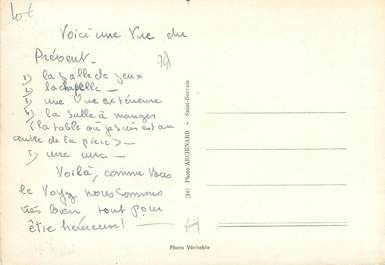 lot
Voici une Vue du
Prévent.
74)
1) la Salle de jeux
2) la chapelle —
3) une Vue extérieure
4) la Salle à manger
(la table où je suis est au
centre de la pièce) —
5) une
Voilà, comme Vous
le Voyez nous sommes
très bien, tout pour
être heureuse! —
(36) Photo ARCHINARD - Saint-Gervais
Photo Véritable